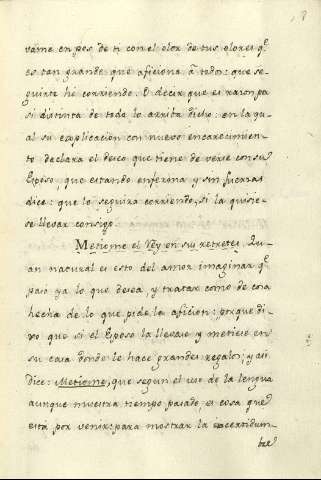 vame en pos de ti con el olor de tus olores q̃
es tan grande que aficiona â todos: que se-
guirte he corriendo. O decir que es razon pa
si distinta de todo lo arriba dicho: en la qu-
al su explicacion con nuevo encarecimien-
to declara el deseo que tiene de verse con su
Esposo, que estando enferma y sin fuerzas
dice: que lo seguira corriendo, si la quisie-
se llevar consigo.
Metiome el Rey en sus retretes. Qu-
an natural es esto del amor imaginar q̃
paso ya lo que desea, y tratar como de cosa
hecha de lo que pide la aficion: porque di-
xo que si el Esposo la llevase y metiese en
su casa donde le hace grandes regalos, y asi
dice: Metiome, que segun el uso de la lengua
aunque muestra tiempo pasado, es cosa que
està por venir: para mostrar la
bre